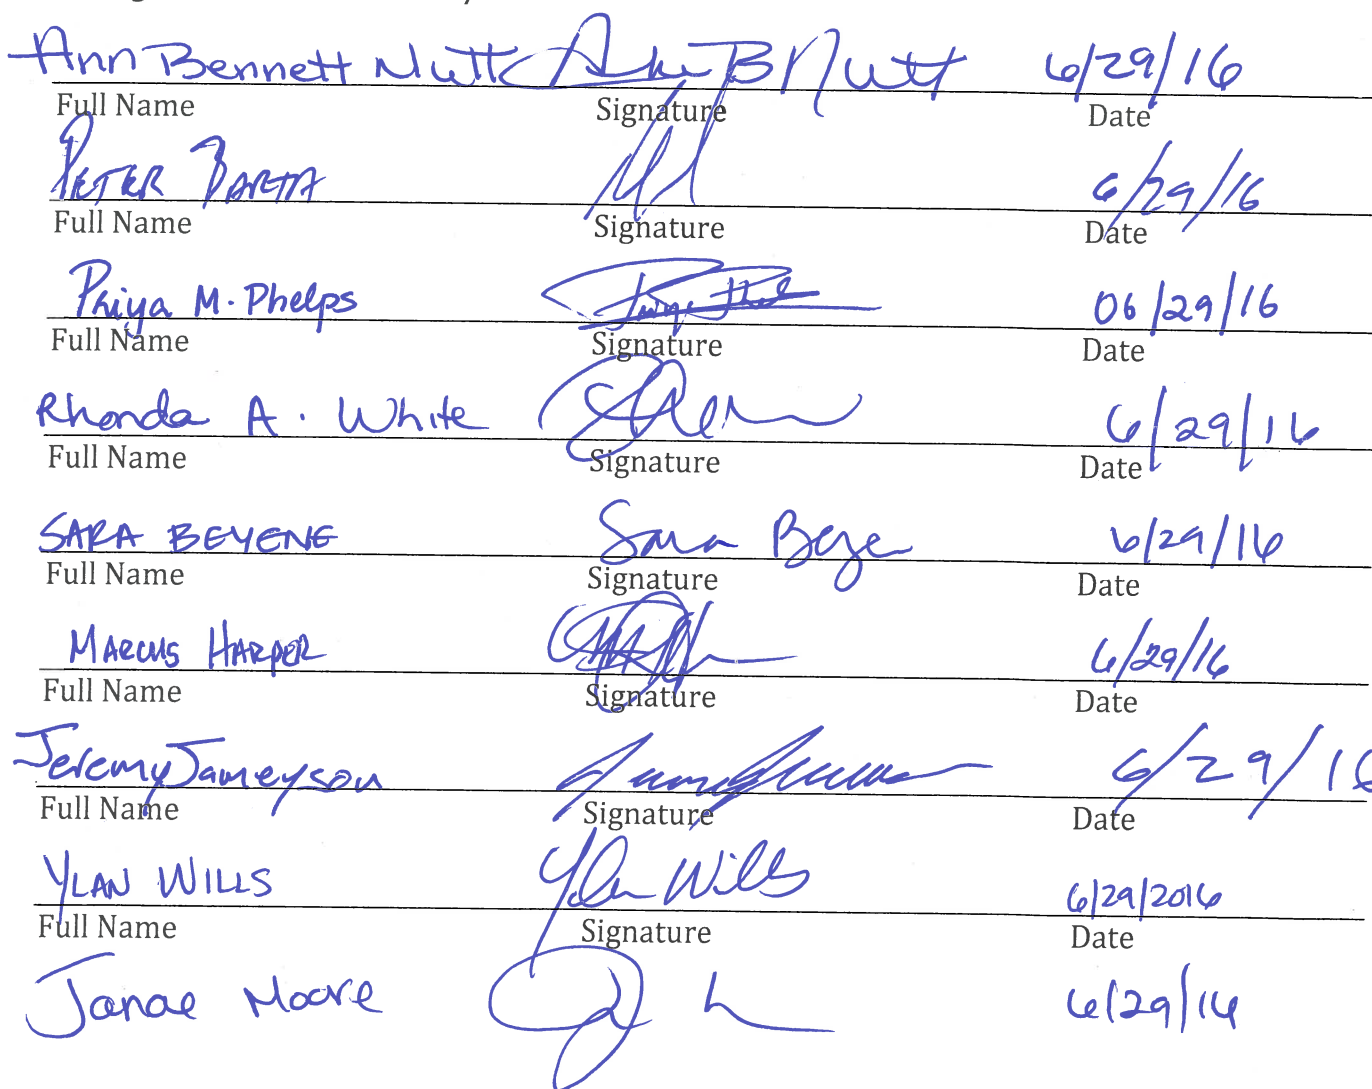 Ann Bennett Nutt Ann B Nutt 6/29/16
Full Name Signature Date
PETER BARTA 6/29/16
Full Name Signature Date
Priya M. Phelps 06/29/16
Full Name Signature Date
Rhonda A. White 6/29/16
Full Name Signature Date
SARA BEYENE Sara Beye 6/29/16
Full Name Signature Date
MARCUS HARPER 6/29/16
Full Name Signature Date
Jeremy Jameyson 6/29/16
Full Name Signature Date
YLAN WILLS Ylan Wills 6/29/2016
Full Name Signature Date
Janae Moore 6/29/16